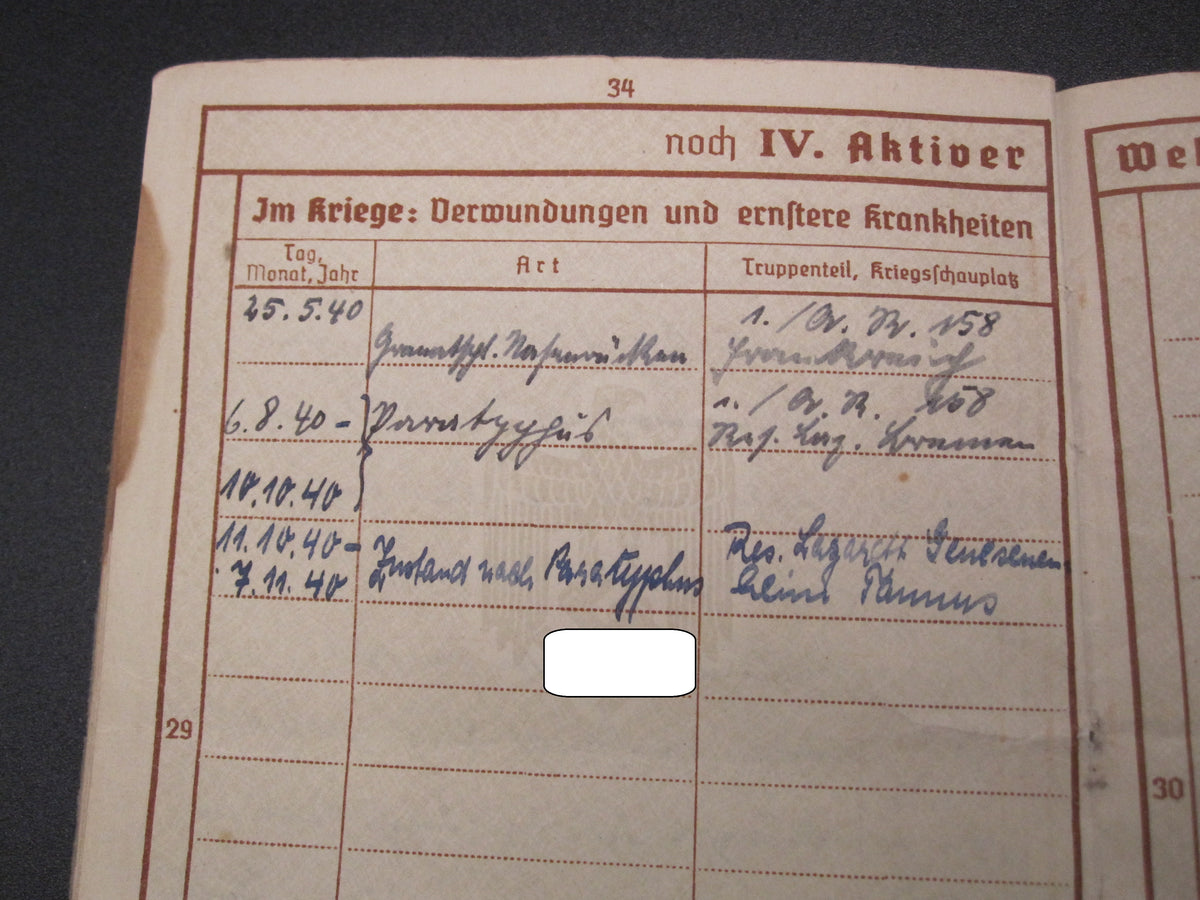 34
noch IV. Aktiver
Im Kriege: Verwundungen und ernstere Krankheiten
Tag,
Monat, Jahr
Art
Truppenteil, Kriegsschauplatz
25.5.40
Granatspl. Nasenrücken
1./A.R. 158
Frankreich
6.8.40 -
Paratyphus
1./A.R. 158
Res. Laz. Bremen
10.10.40
11.10.40 -
7.11.40
Zustand nach Paratyphus
Res. Lazarett Genesenen-
heim Taunus
29
30